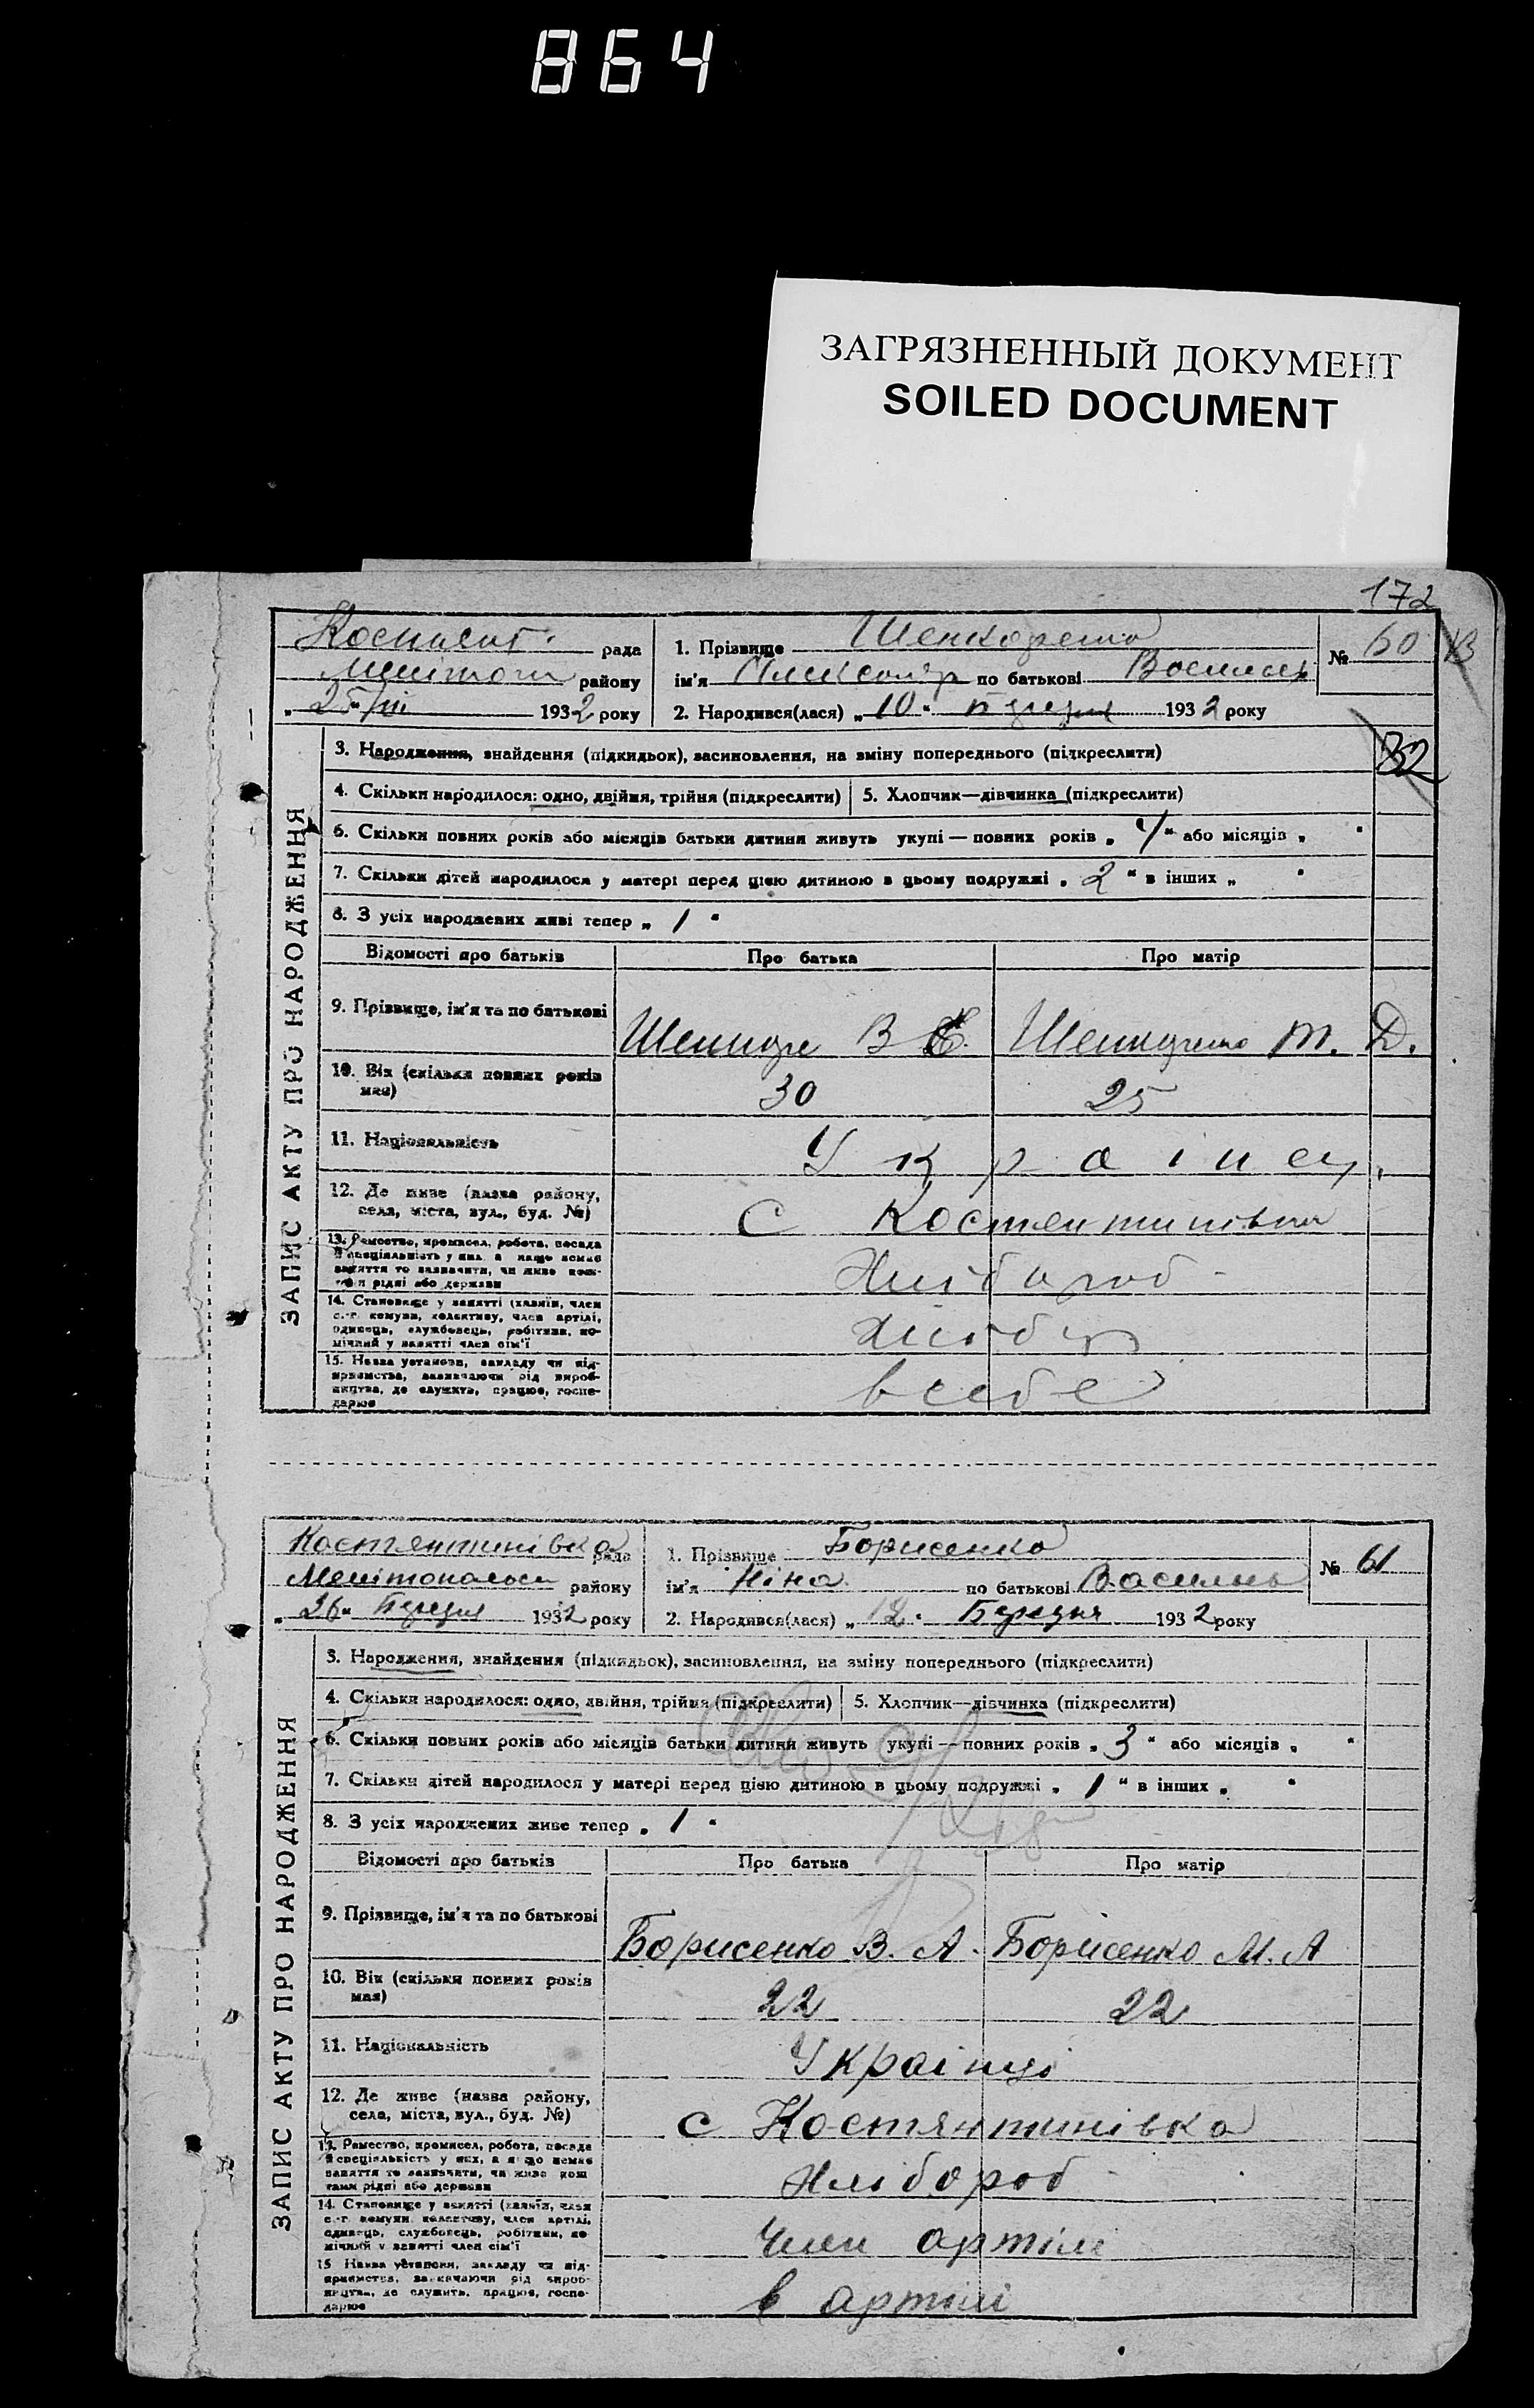 864
ЗАГРЯЗНЕННЫЙ ДОКУМЕНТ
SOILED DOCUMENT
172
рада
району
25/III 1932 року
1. Прізвище
ім'я по батькові
2. Народився(лася) „10" 1932 року
№ 60
ЗАПИС АКТУ ПРО НАРОДЖЕННЯ
3. Народження, знайдення (підкидьок), засиновлення, на зміну попереднього (підкреслити)
32
4. Скільки народилося: одно, двійня, трійня (підкреслити)
5. Хлопчик—дівчинка (підкреслити)
6. Скільки повних років або місяців батьки дитини живуть укупі — повних років „ " або місяців „ "
7. Скільки дітей народилося у матері перед цією дитиною в цьому подружжі „2" в інших „ "
8. З усіх народжених живі тепер „1"
Відомості про батьків
Про батька
Про матір
9. Прізвище, ім'я та по батькові
В Т. Д.
10. Вік (скільки повних років має)
30
25
11. Національність
Украінец.
12. Де живе (назва району,
села, міста, вул., буд. №)
С Костянтинівка
13. Рамество, промисел, робота, посада
й спеціяльність у них, а якщо немає
заняття то зазначити, чи живе кош-
тами рідні або держави
Хлібороб
14. Становище у занятті (хазяїн, член
с.-г. комуни, колективу, член артілі,
одинець, службовець, робітник, по-
мічний у занятті член сім'ї
15. Назва установи, закладу чи під-
приємства, зазначаючи рід вироб-
ництва, де служить, працює, госпо-
дарює
в себе
Костянтинівка рада
району
„26" Березня 1932 року
1. Прізвище Борисенко
ім'я Ніна по батькові Василів
2. Народився(лася) „12" Березня 1932 року
№ 61
ЗАПИС АКТУ ПРО НАРОДЖЕННЯ
3. Народження, знайдення (підкидьок), засиновлення, на зміну попереднього (підкреслити)
4. Скільки народилося: одно, двійня, трійня (підкреслити)
5. Хлопчик—дівчинка (підкреслити)
6. Скільки повних років або місяців батьки дитини живуть укупі — повних років „3" або місяців „ "
7. Скільки дітей народилося у матері перед цією дитиною в цьому подружжі „1" в інших „ "
8. З усіх народжених живе тепер „1"
Відомості про батьків
Про батька
Про матір
9. Прізвище, ім'я та по батькові
Борисенко В. А.
Борисенко М. А
10. Вік (скільки повних років має)
22
22
11. Національність
Украінці
12. Де живе (назва району,
села, міста, вул., буд. №)
с Костянтинівка
13. Рамество, промисел, робота, посада
й спеціяльність у них, а якщо немає
заняття то зазначити, чи живе кош
тами рідні або держави
Хлібороб
14. Становище у занятті (хазяїн, член
с.-г. комуни, колективу, член артілі,
одинець, службовець, робітник, по
мічний у занятті член сім'ї
Член артілі
15 Назва установи, закладу чи під-
приємства, зазначаючи рід вироб-
ництва, де служить, працює, госпо-
дарює
в артілі